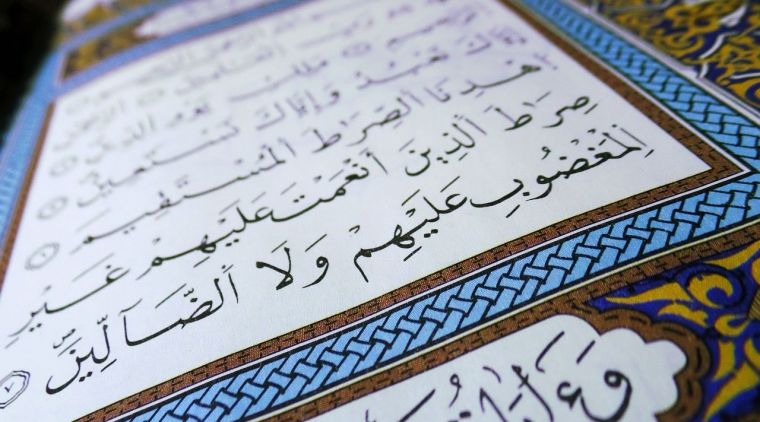 ٱلرَّحِيمِ مَٰلِكِ يَوْمِ ٱلدِّينِ
إِيَّاكَ نَعْبُدُ وَإِيَّاكَ نَسْتَعِينُ
ٱهْدِنَا ٱلصِّرَٰطَ ٱلْمُسْتَقِيمَ ٦
صِرَٰطَ ٱلَّذِينَ أَنْعَمْتَ عَلَيْهِمْ غَيْرِ
ٱلْمَغْضُوبِ عَلَيْهِمْ وَلَا ٱلضَّآلِّينَ ٧